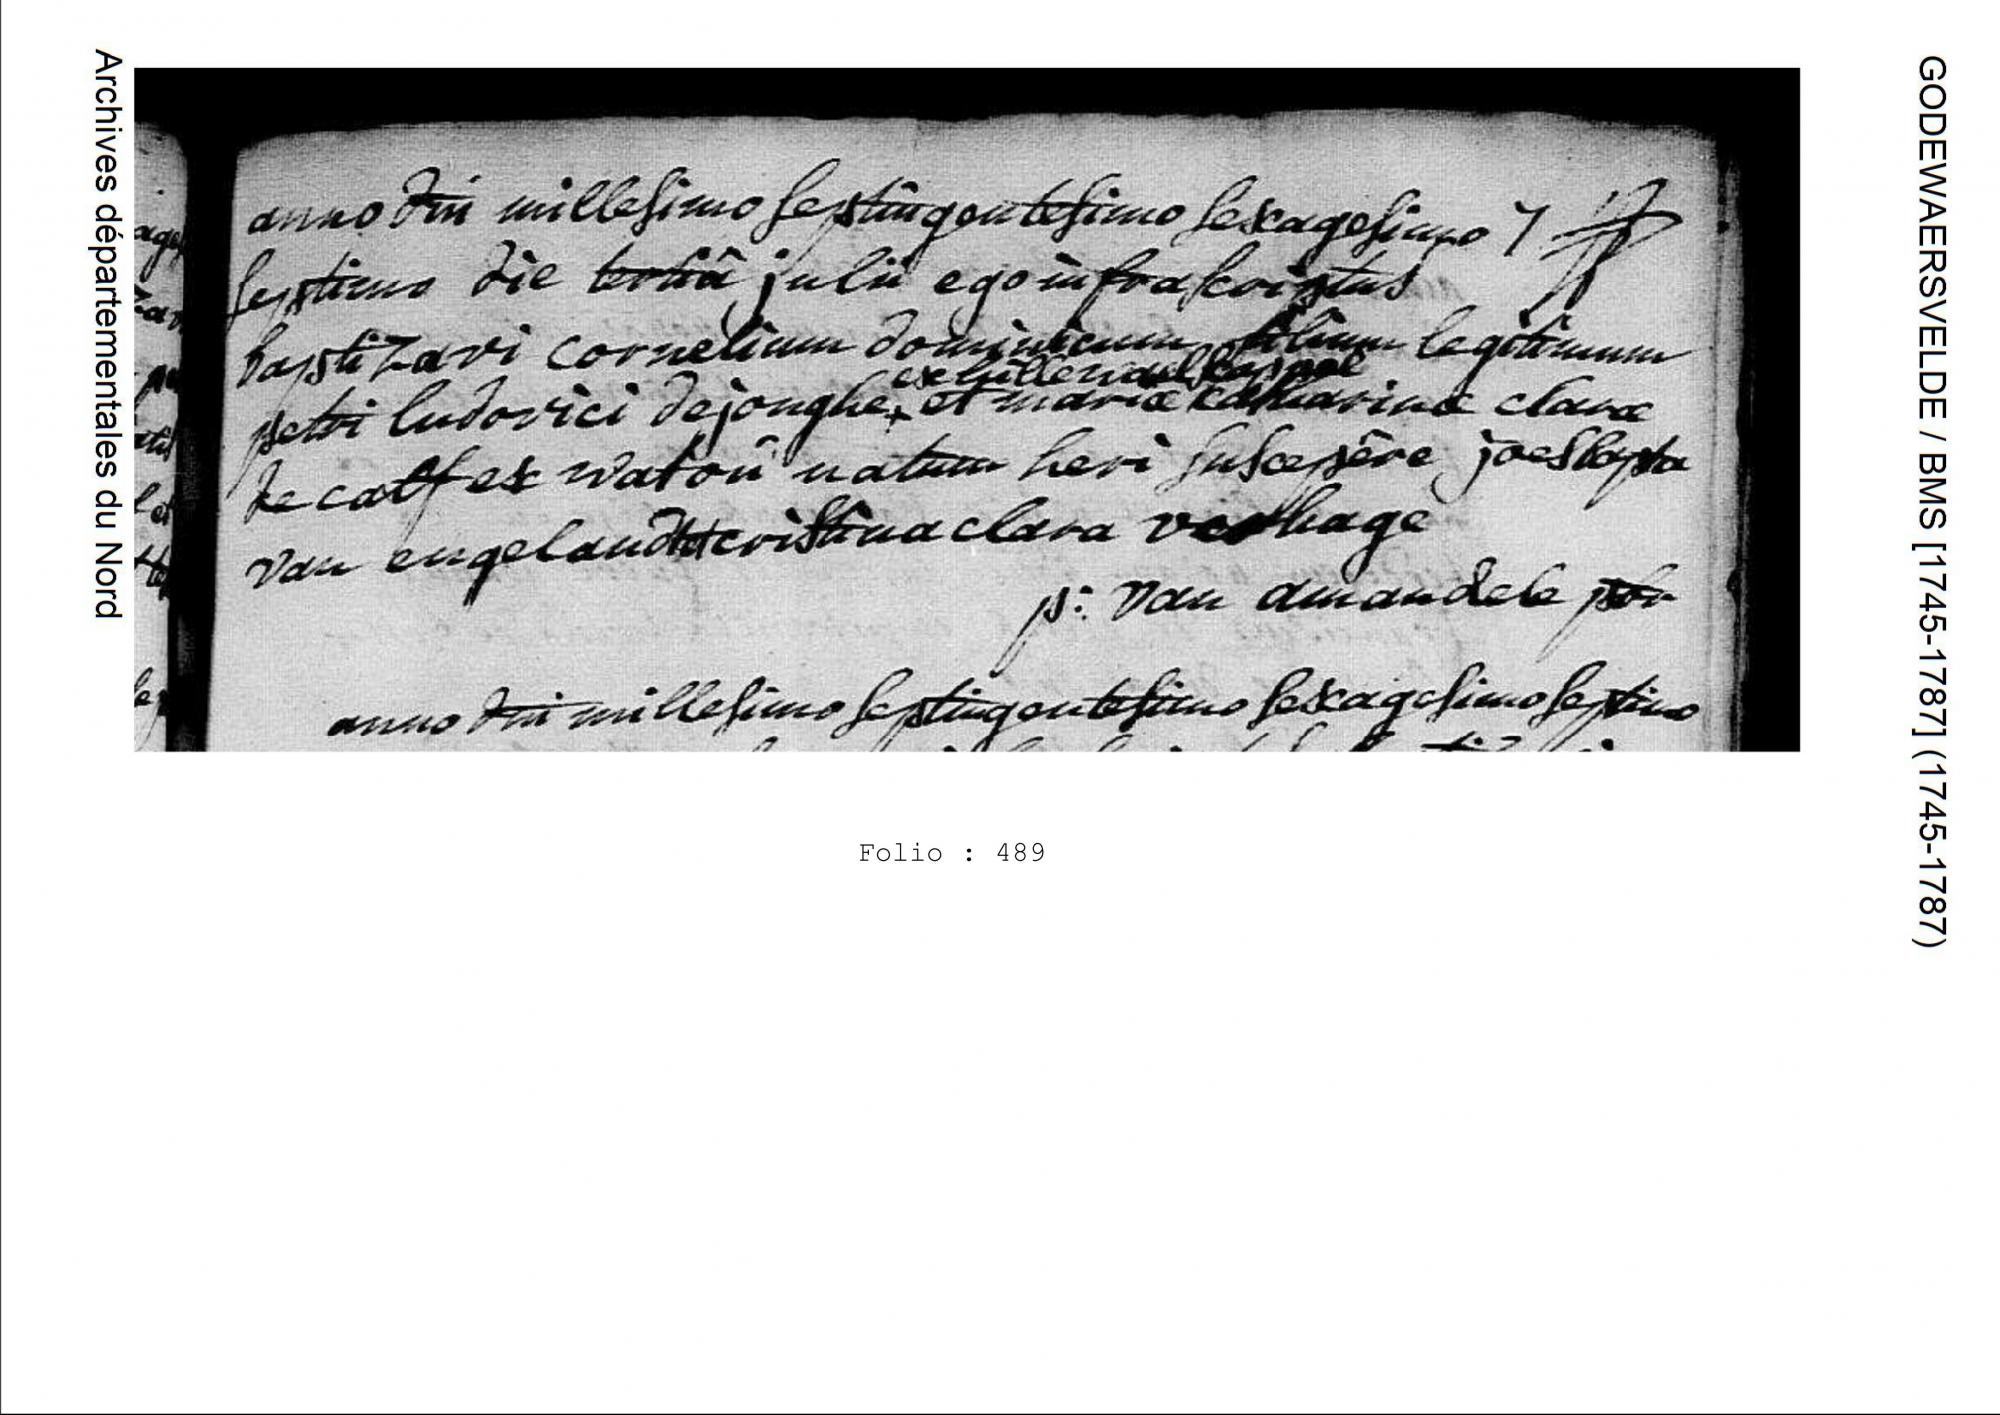 Archives départementales du Nord
GODEWAERSVELDE / BMS [1745-1787] (1745-1787)
anno dni millesimo septingentesimo sexagesimo 7
septimo die tertiâ julii ego infrascriptus
baptizavi cornelium dominicum filium legitimum
petri ludovici dejonghe + et mariæ catharinæ claræ
ex hillewaelscappel
de calf ex watou natum heri suscepêre joes bapta
van engelandt et cristina clara verhage
p: van amandele pbr
anno dni millesimo septingentesimo sexagesimo septimo
Folio : 489